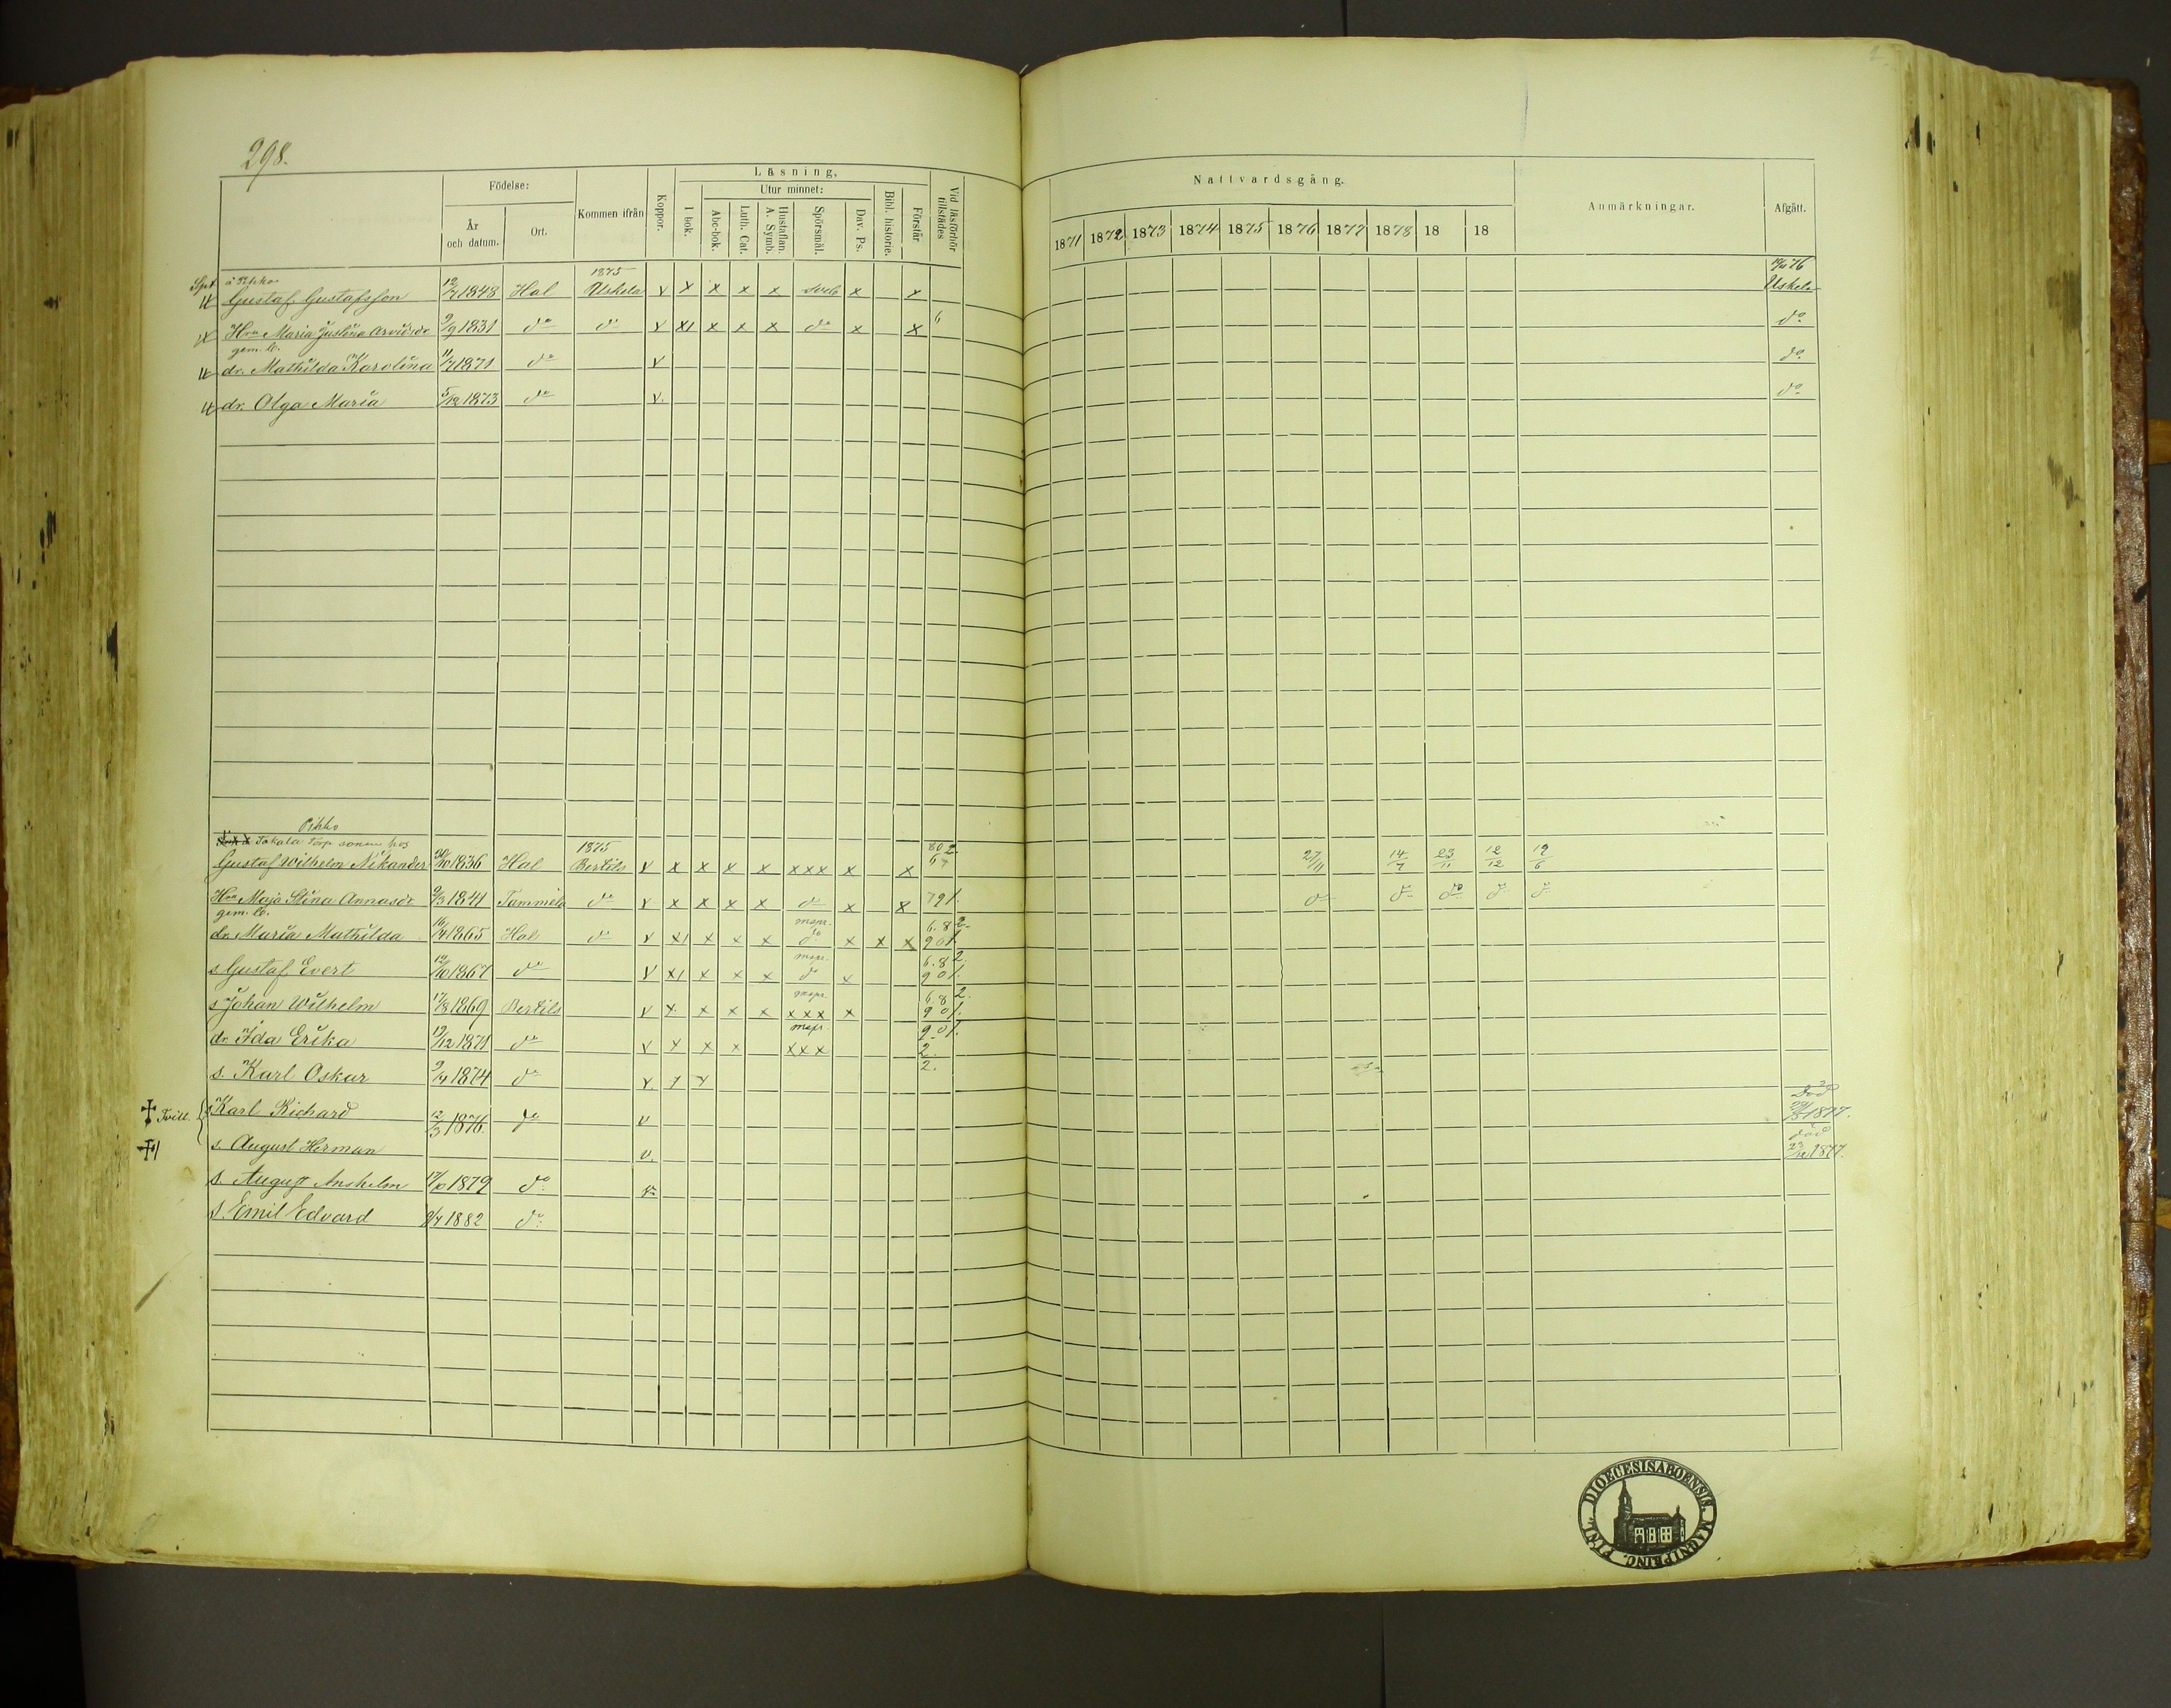 298.
Födelse:
År och datum.
Ort.
Kommen ifrån
Koppor.
Läsning,
I bok.
Utur minnet:
Abc-bok.
Luth. Cat.
Hustaflan A. Symb.
Spörsmål.
Dav. Ps.
Bibl. historie.
Förstår
Vid läsförhör tillstädes
Nattvardsgång.
1871 1872 1873 1874 1875 1876 1877 1878 18 18
Anmärkningar.
Afgått.
1875
Gustaf Gustafsson 1848 Hal Uskela v x x x x x x 76 Uskela
Hru Maria Justina Arvidsdr 9/9 1831 do do v x1 x x x do x x 6 do
gem. b.
dr. Mathilda Karolina 11/7 1871 do v do
dr. Olga Maria 5/12 1873 do v. do
Pihko
Takala Torp sonens hos
1875
Gustaf Wilhelm Nikander 1836 Hal Bertils v x x x x xxx x x 27/11 14/7 23/11 12/12 19/6
Hru Maja Stina Annasdr 9/3 1841 Tammela do v x x x x do x x 79 1. do do do do do
gem. b.
dr. Maria Mathilda 16/4 1865 Hal do v x1 x x x do x x x 6.8 2. 90 1.
s Gustaf Evert 12/10 1867 do v x1 x x x do x 6.8 2. 90 1.
s Johan Wilhelm 17/8 1869 Bertils v x x x x xxx x 6 8 2. 90 1.
dr. Ida Erika 19/12 1871 do v x x x xxx 90 1. 2.
s. Karl Oskar 9/4 1874 do v. 2.
Tvill. s Karl Richard 12/3 1876. do v Död 1877.
s. August Herman v. död 1877.
s. August Anshelm 17/10 1879 do
s. Emil Edvard 9/4 1882 do
DIOECESIS ABOENSIS. MAGNI PRINC. FINL.